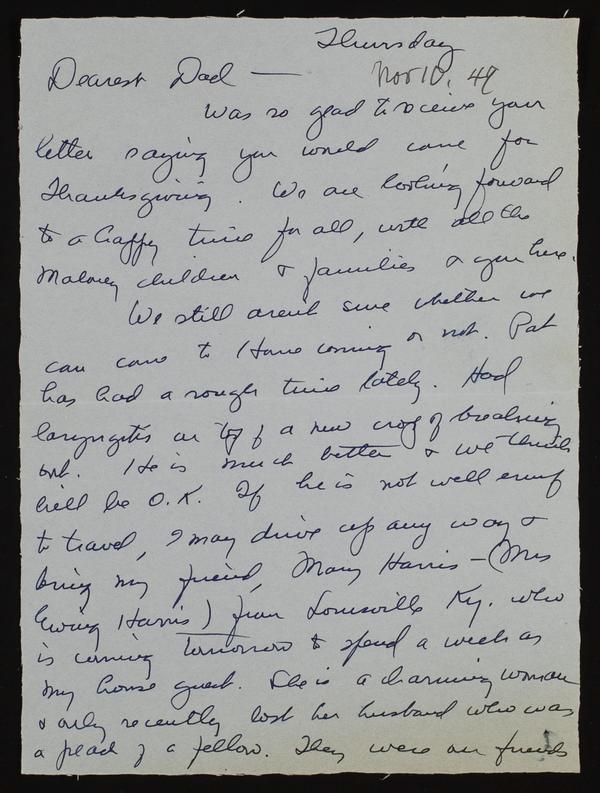 Thursday
Nov 10, 49
Dearest Dad —
Was so glad to receive your
letter saying you would come for
Thanksgiving. We are looking forward
to a happy time for all, with all the
Maloney children & families & you here.
We still aren't sure whether we
can come to Home coming or not. Pat
has had a rough time lately. Had
laryngitis on top of a new crop of breaking
out. He is much better & we think
he'll be O.K. If he is not well enuf
to travel, I may drive up any way &
bring my friend, Mary Harris – (Mrs
Ewing Harris) from Louisville Ky. who
is coming tomorrow to spend a week as
my house guest. She is a charming woman
& only recently lost her husband who was
a of a fellow. They were our friends